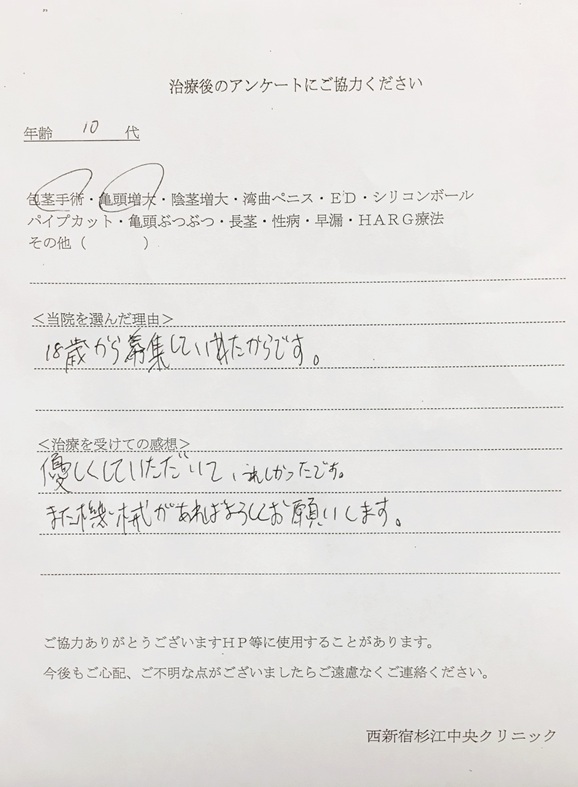 治療後のアンケートにご協力ください
年齢 10 代
包茎手術・亀頭増大・陰茎増大・湾曲ペニス・ED・シリコンボール
パイプカット・亀頭ぶつぶつ・長茎・性病・早漏・HARG療法
その他（　　　　）
＜当院を選んだ理由＞
18歳から募集していれたからです。
＜治療を受けての感想＞
優しくしていただいて、うれしかったです。
また機械があればよろしくお願いします。
ご協力ありがとうございますHP等に使用することがあります。
今後もご心配、ご不明な点がございましたらご遠慮なくご連絡ください。
西新宿杉江中央クリニック